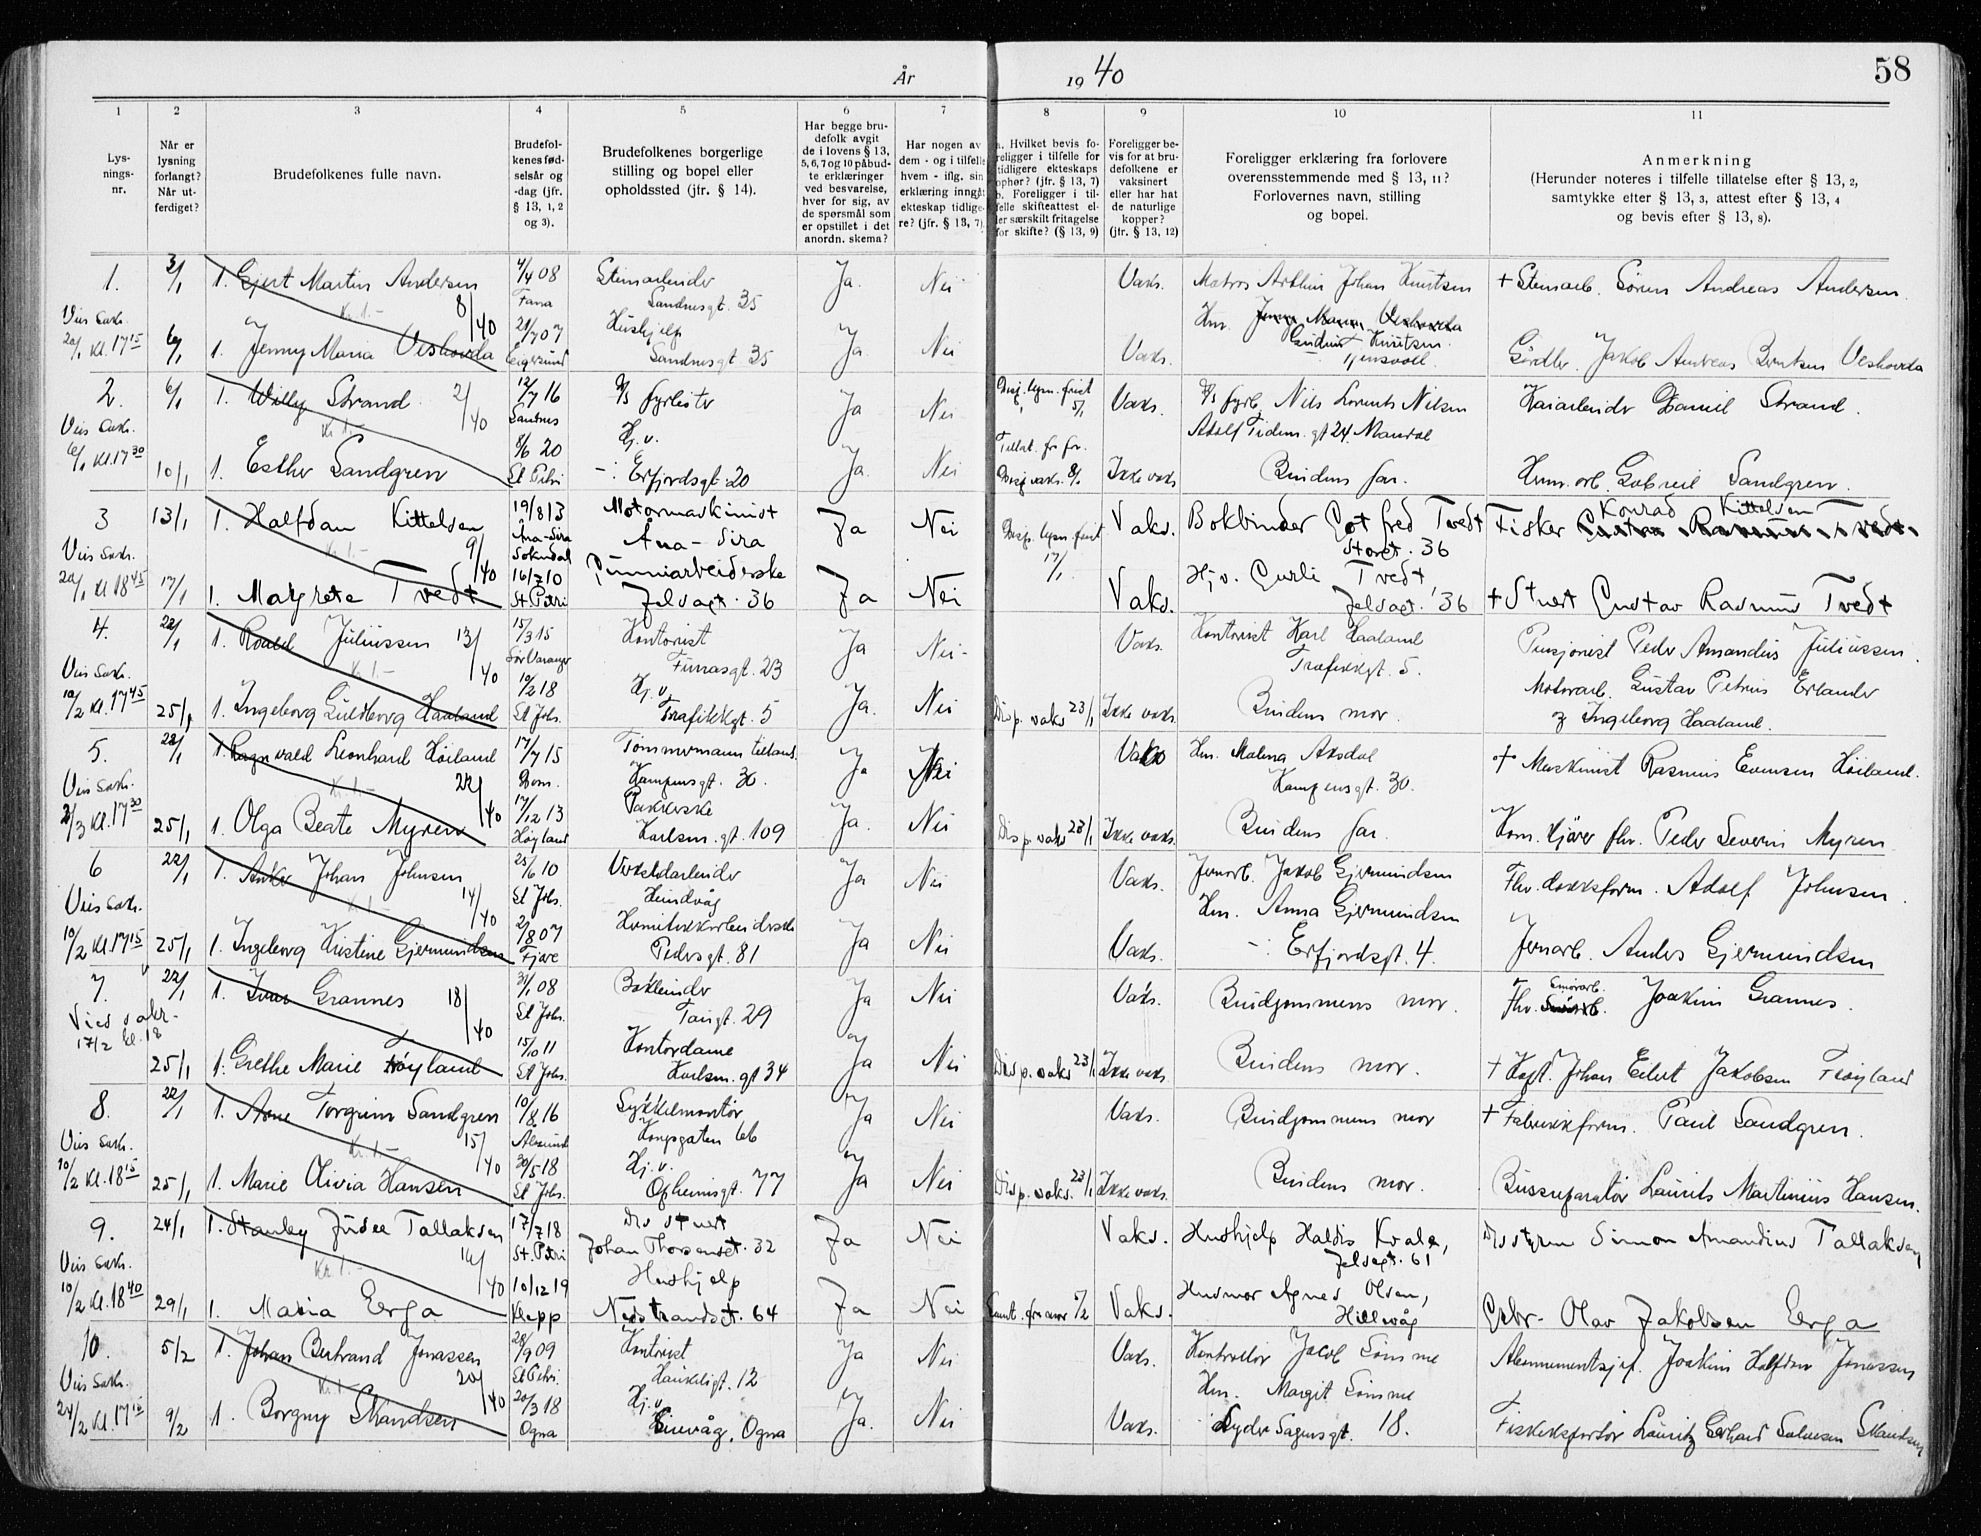 År 1940
58
1 2 3 4 5 6 7 8 9 10 11
Lysningsnr.
Når er lysning forlangt? Når utferdiget?
Brudefolkenes fulle navn.
Brudefolkenes fødselsår og -dag (jfr. § 13, 1, 2 og 3).
Brudefolkenes borgerlige stilling og bopel eller opholdssted (jfr. § 14).
Har begge brudefolk avgit de i lovens § 13, 5, 6, 7 og 10 påbudte erklæringer ved besvarelse, hver for sig, av de spørsmål som er opstillet i det anordn. skema?
Har nogen av dem - og i tilfelle hvem - iflg. sin erklæring inngått ekteskap tidligere? (jfr. § 13, 7)
a. Hvilket bevis foreligger i tilfelle for tidligere ekteskaps ophør? (jfr. § 13, 7) b. Foreligger i tilfelle skifteattest eller særskilt fritagelse for skifte? (§ 13, 9)
Foreligger bevis for at brudefolkene er vaksinert eller har hat de naturlige kopper? (jfr. § 13, 12)
Foreligger erklæring fra forlovere overensstemmende med § 13, 11? Forlovernes navn, stilling og bopel.
Anmerkning (Herunder noteres i tilfelle tillatelse efter § 13, 2, samtykke efter § 13, 3, attest efter § 13, 4 og bevis efter § 13, 8).
1. 3/1 1. Gjert Martin Andersen 4/4 08 Fana Stenarbeider Sandnesgt. 35 Ja. Nei Vaks. Matros Arthur Johan Knutsen + Stenarb. Sören Andreas Andersen.
8/40 Kr. 1.-
Viis Sakr. 20/1 Kl. 17 15 6/1 1. Jenny Maria Veshovda 21/7 07 Eigersund Hushjelp Sandnesgt 35 Ja. Nei Vaks. Hm. Gudrun Knutsen Jakob Andreas Berntsen Veshovda
2. 6/1 1. Willy Strand 12/7 16 Ja Nei Disp. lysn. frist 5/1 Vaks. Nils Lorents Nilsen Adolf Tidem. gt 24 Mandal Kaiarbeider Daniel Strand.
2/40 Kr. 1.-
Viis Sakr. 6/1 Kl. 17 30 10/1 1. Esther Sandgren 8/6 20 St. Petri Hj. v. Erfjordsgt. 20 Ja. Nei Disp. vaks. 8/1 Ikke vaks Brudens far. Gabriel Sandgren.
3 13/1 1. Halfdan Kittelsen 19/8 13 Åna-Sira Sokndal Motormaskinist Åna-Sira Ja Nei Disp. lysn. frist 17/1 Vaks. Bokbinder Gotfred Tvedt Storgt. 36 Fisker Konrad Kittelsen
9/40 Kr. 1.-
Viis Sakr. 20/1 Kl 18 45 17/1 1. Margrete Tvedt 16/7 10 St. Petri Gummiarbeiderske Jelsagt. 36 Ja Nei Vaks. Hj. v. Gurli Tvedt Jelsagt. 36 + Stuert Gustav Rasmus Tvedt
4. 22/1 1. Roald Juliussen 15/3 15 Sör Varanger Kontorist Furrasgt. 23 Ja Nei- Vaks. Kontorist Karl Haaland Trafikkgt. 5. Pensjonist Peder Amandus Juliussen.
13/40 Kr. 1.-
Viis Sakr. 10/2 Kl. 17 45 25/1 1. Ingeborg Guldborg Haaland 10/2 18 St. Joh. Hj. v. Trafikkgt. 5 Ja. Nei Disp. vaks 23/1 Ikke vaks. Brudens mor. Motorarb. Gustav Petrus Erlander og Ingeborg Haaland.
5. 22/1 1. Ragnvald Leonhard Höiland 17/7 15 Dom. Tömmermann Kampensgt. 30. Ja Nei Vaks Hm. Malena Aksdal Kampensgt. 30. + Maskinist Rasmus Evensen Höiland.
22/40 Kr. 1.-
Viis Sakr. 2/3 Kl. 17 30 25/1 1. Olga Beate Myren 17/12 13 Høyland Pakkerske Karlsm. gt. 109 Ja. Nei Disp. vaks 23/1 Ikke vaks. Brudens far. Kom. kjörer fhv. Peder Severin Myren
6 22/1 1. Anker Johan Johnsen 25/6 10 St. Joh. Verkstdarbeider Hundvåg Ja Nei Vaks. Jernarb. Jakob Gjermundsen Fhv. dokkform. Adolf Johnsen.
14/40 Kr. 1.-
Viis Sakr. 10/2 Kl. 17 15 25/1 1. Ingeborg Kristine Gjermundsen 2/8 07 Fjære Hermetikkarbeiderske Pedersgt. 81 Ja Nei Vaks. Hm. Anna Gjermundsen -:- Erfjordsgt. 4. Jernarb. Anders Gjermundsen
7. 22/1 1. Ivar Grannes 31/1 08 St Joh. Bokbinder Tangt. 29 Ja Nei Vaks. Brudgommens mor. Fhv. Smörarb. Joakim Grannes.
18/40
Vies sakr. 17/2 kl. 18 25/1 1. Grethe Marie Høyland 15/10 11 St Joh. Kontordame Karlsm. gt 34 Ja Nei Disp. vaks 23/1 Ikke vaks. Brudens mor. + Kapt. Johan Eilert Jakobsen
8. 22/1 1. Arne Torgrim Sandgren 10/8 16 Sykkelmontör Kongsgaten 66 Ja Nei Vaks. Brudgommens mor + Fabrikkform. Paul Sandgren.
15/40 Kr. 1.-
Viis Sakr. 10/2 Kl. 18 15 25/1 1. Marie Olivia Hansen 30/5 18 St Joh. Hj. v. Opheimsgt. 77 Ja Nei Disp. vaks. 23/1 Ikke vaks. Brudens mor. Bussreparatör Laurits Martinius Hansen.
9. 24/1 1. Stanley Tallaksen 17/7 18 St. Petri D/S stuert Johan Thorsensgt. 32 Ja Nei Vaks. Hushjelp Haldis Kvale, Jelsagt. 61 Simon Amandius Tallaksen
16/40 Kr. 1.-
Viis Sakr. 10/2 Kl. 18 40 29/1 1. Maria Erga 10/12 19 Klepp Hushjelp Nedstrandsgt. 64 Ja Nei 5/2 Vaks. Husmor Agnes Olsen, Hillevåg Gbr. Olav Jakobsen Erga
10. 5/2 1. Johan Bertrand Jonassen 28/9 09 St Petri Kontorist Haukeligt. 12 Ja Nei Vaks. Kontrollör Jacob Sömme Abonnementsjef. Joakim Halfdan Jonassen
20/40 Kr. 1.-
Viis Sakr. 24/2 Kl. 17 15 9/2 1. Borgny Skandsen 20/3 18 Ogna Hj. v. Sirevåg, Ogna Ja. Nei Vaks. Hm. Margit Sömme Lyder Sagensgt. 18. Fiskeeksportör Lauritz Gerhard Salvesen Skandsen